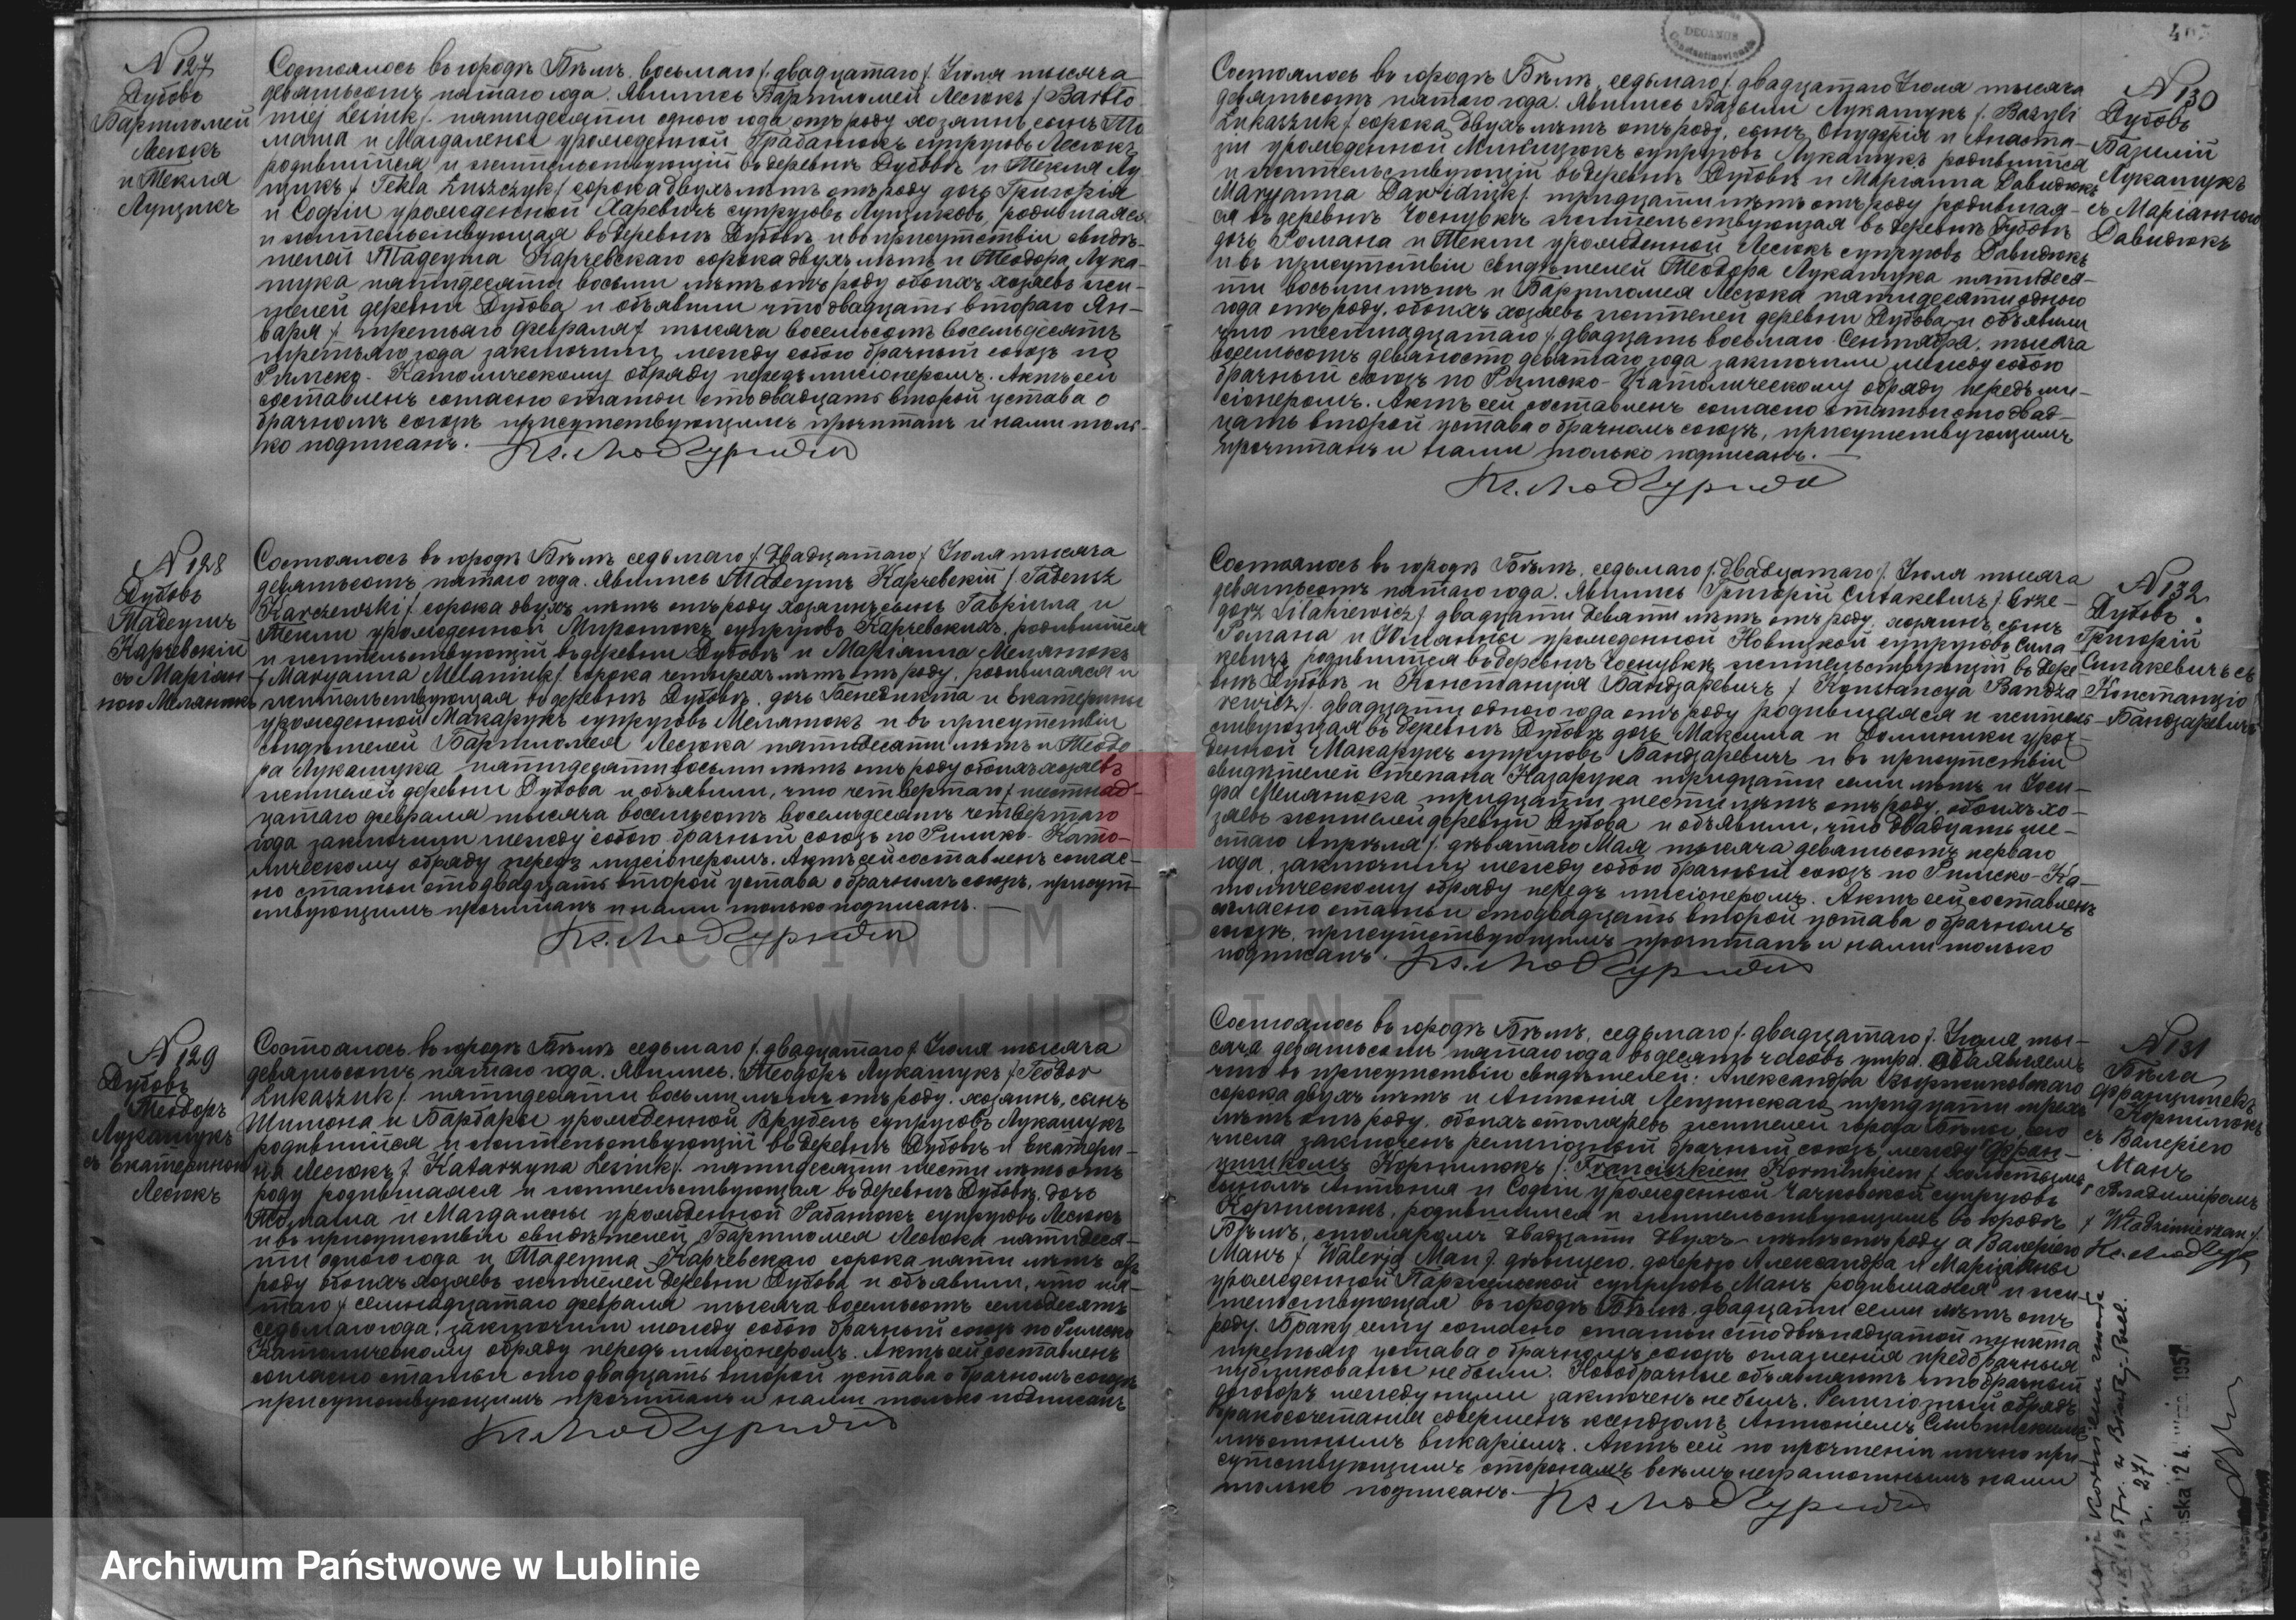 N 127
Дубовъ
Бартломей
Лесюкъ
и Текля
Лущикъ
Состоялось въ городѣ Бѣлѣ восьмаго /:двадцатаго/ Іюля тысяча
девятьсотъ пятаго года. Явились Бартломей Лесюкъ /:Bartło
miej Lesiuk/: пятидесяти одного года отъ роду хозяинъ сынъ То
маша и Магдалены урожденной Грабанюкъ супруговъ Лесюкъ,
родившійся и жительствующій въ деревнѣ Дубовѣ и Текля Лу
щикъ /: Tekla Łuszczyk/ сорока двухъ лѣтъ отъ роду дочь Григорія
и Софіи урожденной Харевичъ супруговъ Лущиковъ, родившаяся
и жительствующая въ деревнѣ Дубовѣ, и въ присутствіи свидѣ-
телей Тадеуша Карчевскаго сорока двухъ лѣтъ и Теодора Лука-
шука пятидесяти восьми лѣтъ отъ роду обоихъ хозяевъ жи-
телей деревни Дубова и объявили что двадцать втораго Ян-
варя /: третьяго февраля/ тысяча восемьсотъ восемьдесятъ
третьяго года заключили между собою брачный союзъ по
Римско-Католическому обряду передъ мисіонеромъ. Актъ сей
составленъ согласно статьи сто двадцать второй устава о
брачномъ союзѣ присутствующимъ прочитанъ и нами толь-
ко подписанъ.
N 128
Дубовъ
Тадеушъ
Карчевскій
съ Маріан
ною Мелянюкъ
Состоялось въ городѣ Бѣлѣ седьмаго /:двадцатаго/ Іюля тысяча
девятьсотъ пятаго года. Явились Тадеушъ Карчевскій /:Tadeusz
Karczewski/ сорока двухъ лѣтъ отъ роду хозяинъ сынъ Гавріила и
Текли урожденной Миронюкъ супруговъ Карчевскихъ, родившійся
и жительствующій въ деревни Дубовѣ и Маріянна Мелянюкъ
/:Maryanna Melaniuk/: сорока четырехъ лѣтъ отъ роду, родившаяся и
жительствующая въ деревнѣ Дубовѣ, дочь Бенедикта и Екатерины
урожденной Макарукъ супруговъ Мелянюкъ и въ присутствіи
свидѣтелей Бартломея Лесюка пятидесяти лѣтъ и Теодо
ра Лукашука пятидесяти восьми лѣтъ отъ роду обоихъ хозяевъ
жителей деревни Дубова и объявили, что четвертаго /:шестнад-
цатаго февраля тысяча восемьсотъ восемьдесятъ четвертаго
года заключили между собою брачный союзъ по Римско-Като-
лическому обряду передъ мисіонеромъ. Актъ сей составленъ соглас-
но статьи сто двадцать второй устава о брачномъ союзѣ, присут-
ствующимъ прочитанъ и нами только подписанъ.
N 129
Дубовъ
Теодоръ
Лукашукъ
съ Екатериною
Лесюкъ
Состоялось въ городѣ Бѣлѣ седьмаго /:двадцатаго/ Іюля тысяча
девятьсотъ пятаго года. Явились Теодоръ Лукашукъ /:Teodor
Łukaszuk/ пятидесяти восьми лѣтъ отъ роду, хозяинъ, сынъ
Шимона и Барбары урожденной Врубель супруговъ Лукашукъ
родившійся и жительствующій въ деревнѣ Дубовѣ и Екатери-
на Лесюкъ /: Katarzyna Lesiuk/: пятидесяти шести лѣтъ отъ
роду родившаяся и жительствующая въ деревнѣ Дубовѣ, дочь
Томаша и Магдалены урожденной Рабанюкъ супруговъ Лесюкъ
и въ присутствіи свидѣтелей Бартломея Лесюка пятидеся-
ти одного года и Тадеуша Карчевскаго сорока пяти лѣтъ отъ
роду обоихъ хозяевъ жителей деревни Дубова и объявили, что пя-
таго /: семнадцатаго февраля тысяча восемьсотъ семьдесятъ
седьмаго года, заключили между собою брачный союзъ по Римско
Католическому обряду передъ мисіонеромъ. Актъ сей составленъ
согласно статьи сто двадцать второй устава о брачномъ союзѣ
присутствующимъ прочитанъ и нами только подписанъ
DECANUS
N 130
Дубовъ
Базилій
Лукашукъ
съ Маріанною
Давидюкъ
Состоялось въ городѣ Бѣлѣ, седьмаго /:двадцатаго Іюля тысяча
девятьсотъ пятаго года. Явились Базыли Лукашукъ /:Bazyli
Łukaszuk/ сорока двухъ лѣтъ отъ роду, сынъ Онуфрія и Анаста-
зіи урожденной супруговъ Лукашукъ родившійся
и жительствующій въ деревнѣ Дубовѣ и Маріанна Давидюкъ
Maryanna Dawidiuk/: тридцати лѣтъ отъ роду родившая-
ся въ деревнѣ Чоснувкѣ жительствующая въ деревнѣ Дубовѣ
дочь Романа и Текли урожденной Лесюкъ супруговъ Давидюкъ
и въ присутствіи свидѣтелей Теодора Лукашука пятидеся-
ти восьми лѣтъ и Бартломея Лесюка пятидесяти одного
года отъ роду, обоихъ хозяевъ жителей деревни Дубова и объявили
что шестнадцатаго /:двадцать восьмаго Сентября, тысяча
восемьсотъ девяносто девятаго года заключили между собою
брачный союзъ по Римско-Католическому обряду передъ ми-
сіонеромъ. Актъ сей составленъ согласно статьи сто двад-
цать второй устава о брачномъ союзѣ, присутствующимъ
прочитанъ и нами только подписанъ.
N 132
Дубовъ
Григорій
Силакевичъ съ
Констанціею
Бандзаревичъ
Состоялось въ городѣ Бѣлѣ, седьмаго /:двадцатаго/: Іюля тысяча
девятьсотъ пятаго года. Явились Григорій Силакевичъ /:Grze-
gorz Silakiewicz/ двадцати девяти лѣтъ отъ роду, хозяинъ сынъ
Романа и Юліанны урожденной Новицкой супруговъ Сила
кевичъ родившійся въ деревнѣ Чоснувкѣ жительствующій въ дере
внѣ Дубовѣ и Констанція Бандзаревичъ /: Konstancya Bandza
rewicz/: двадцати одного года отъ роду родившаяся и житель-
ствующая въ деревнѣ Дубовѣ дочь Максима и Доминики урож-
денной Макарукъ супруговъ Бандзаревичъ и въ присутствіи
свидѣтелей Степана Назарука тридцати семи лѣтъ и Іоси-
фа Мелянюка тридцати шести лѣтъ отъ роду, обоихъ хо-
зяевъ жителей деревни Дубова и объявили, что двадцать ше-
стаго Апрѣля /: девятаго Мая тысяча девятьсотъ перваго
года, заключили между собою брачный союзъ по Римско-Ка-
толическому обряду передъ мисіонеромъ. Актъ сей составленъ
согласно статьи сто двадцать второй устава о брачномъ
союзѣ, присутствующимъ прочитанъ и нами только
подписанъ.
N 131
Бѣла
Францишекъ
Корнилюкъ
съ Валеріею
Манъ
Владиміромъ
/ Włodzimierzem/
Состоялось въ городѣ Бѣлѣ, седьмаго /: двадцатаго/: Іюля ты-
сяча девятьсотъ пятаго года въ десять часовъ утра. Объявляемъ
что въ присутствіи свидѣтелей: Александра
сорока двухъ лѣтъ и Антонія Лещинскаго тридцати трехъ
лѣтъ отъ роду, обоихъ столяровъ жителей города Бѣлы, сего
числа заключенъ религіозный брачный союзъ между Фран-
цишкомъ Корнилюкъ /: Franciszkiem Kornilukiem/ холостымъ
сыномъ Антонія и Софіи урожденной Чачковской супруговъ
Корнилюкъ, родившимся и жительствующимъ въ городѣ
Бѣлѣ, столяромъ двадцати двухъ лѣтъ отъ роду а Валеріею
Манъ / Walerją Man/ дѣвицею, дочерью Александра и Маріанны
урожденной супруговъ Манъ родившаяся и жи-
тельствующая въ городѣ Бѣлѣ, двадцати семи лѣтъ отъ
роду. Браку сему согласно статьи сто двѣнадцатой пункта
третьяго устава о брачномъ союзѣ оглашенія предбрачныя
публикованы не были. Новобрачные объявляютъ что брачный
договоръ между ними заключенъ не былъ. Религіозный обрядъ
бракосочетанія совершенъ ксендзомъ Антоніемъ
мѣстнымъ викаріемъ. Актъ сей по прочтеніи лично при
сутствующимъ сторонамъ всѣмъ неграмотнымъ нами
только подписанъ
271
1957
ARCHIWUM PAŃSTWOWE
W LUBLINIE
Archiwum Państwowe w Lublinie